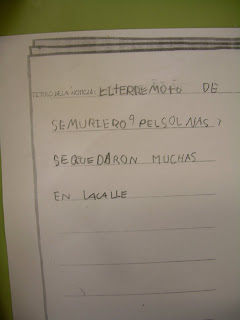 TÍTULO DE LA NOTICIA: EL TERREMOTO DE
SEMURIERO 9 PELSOLNAS Y
SEQUEDARON MUCHAS
EN LACALLE